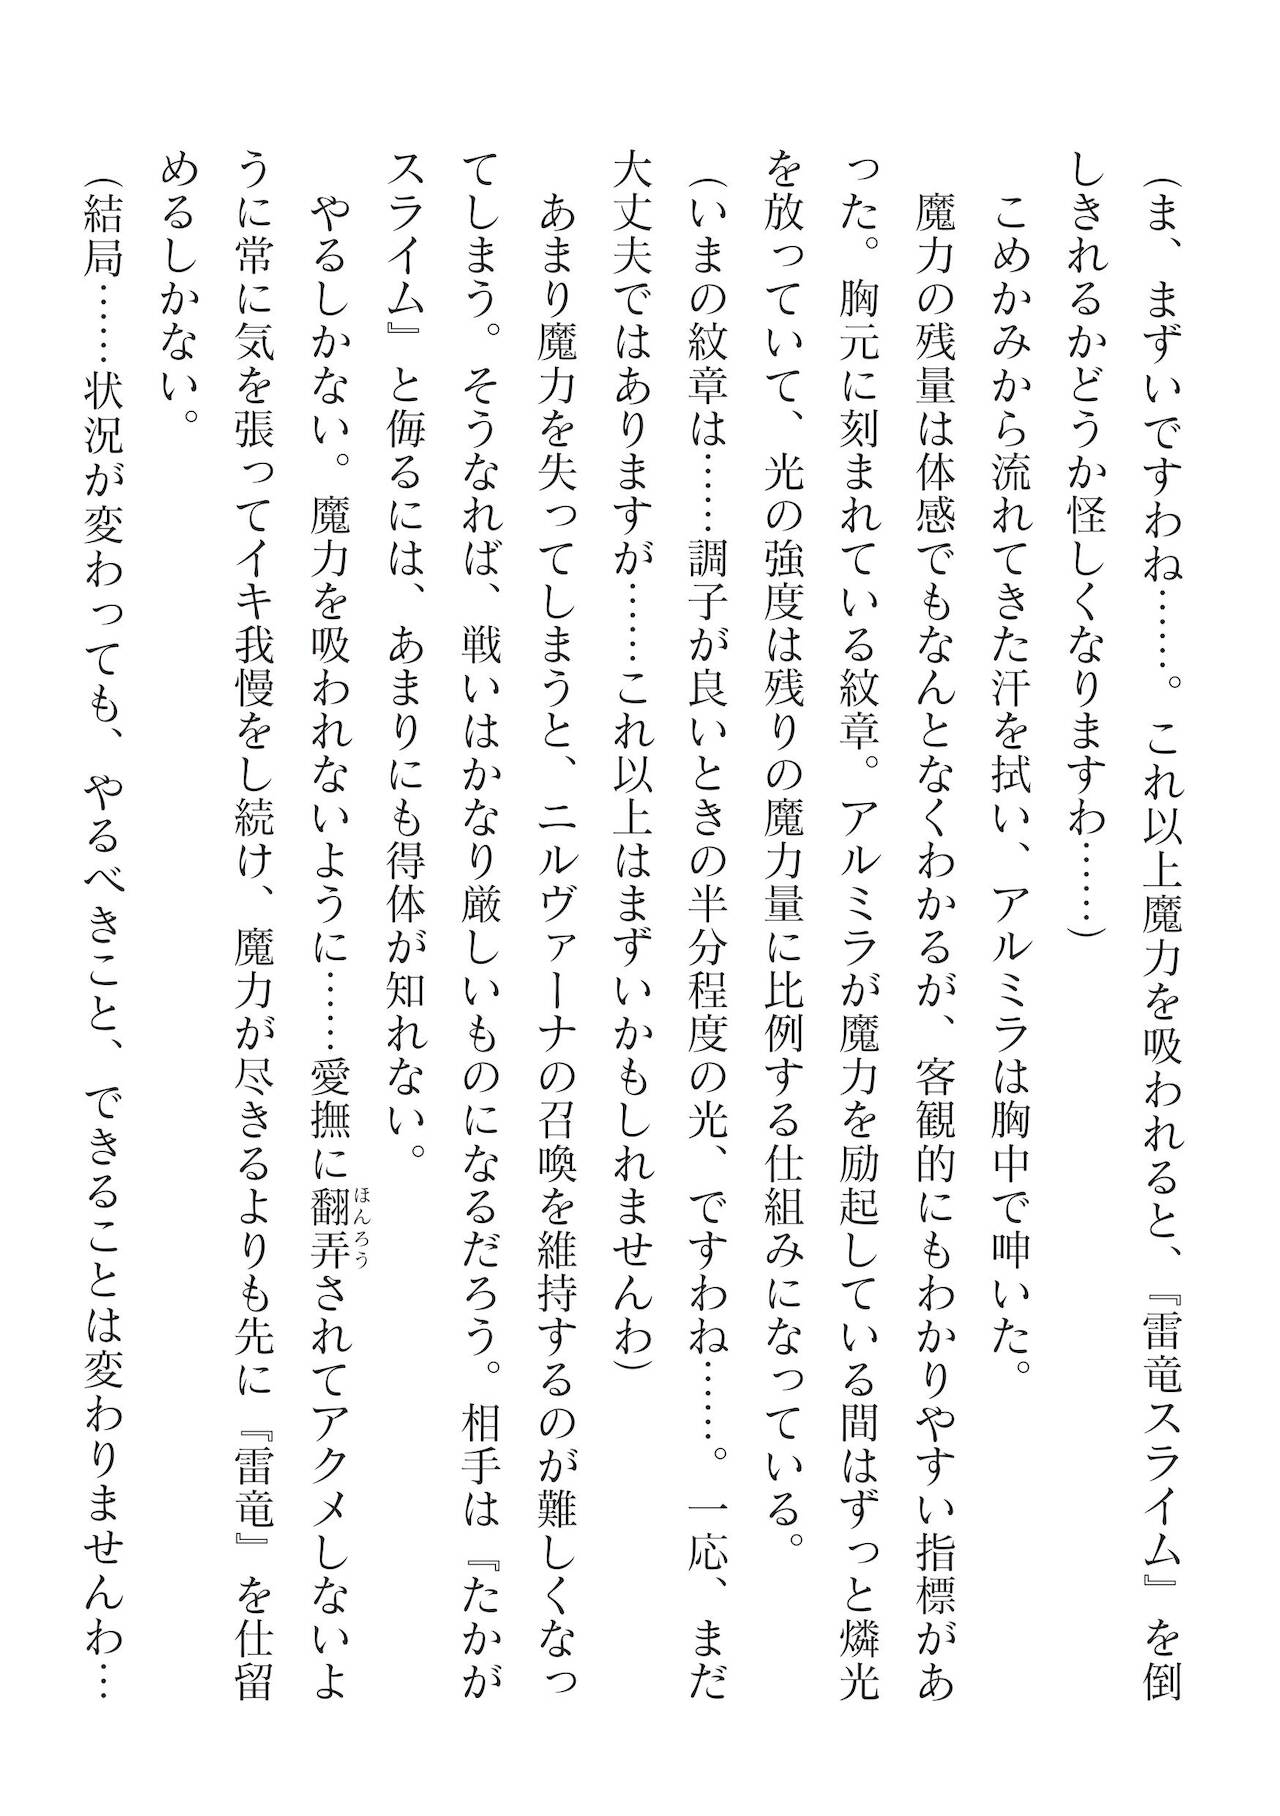 (ま、まずいですわね……。これ以上魔力を吸われると、『雷竜スライム』を倒
しきれるかどうか怪しくなりますわ……)
　こめかみから流れてきた汗を拭い、アルミラは胸中で呻いた。
　魔力の残量は体感でもなんとなくわかるが、客観的にもわかりやすい指標があ
った。胸元に刻まれている紋章。アルミラが魔力を励起している間はずっと燐光
を放っていて、光の強度は残りの魔力量に比例する仕組みになっている。
(いまの紋章は……調子が良いときの半分程度の光、ですわね……。一応、まだ
大丈夫ではありますが……これ以上はまずいかもしれませんわ)
　あまり魔力を失ってしまうと、ニルヴァーナの召喚を維持するのが難しくなっ
てしまう。そうなれば、戦いはかなり厳しいものになるだろう。相手は『たかが
スライム』と侮るには、あまりにも得体が知れない。
　やるしかない。魔力を吸われないように……愛撫に翻弄ほんろうされてアクメしないよ
うに常に気を張ってイキ我慢をし続け、魔力が尽きるよりも先に『雷竜』を仕留
めるしかない。
(結局……状況が変わっても、やるべきこと、できることは変わりませんわ…